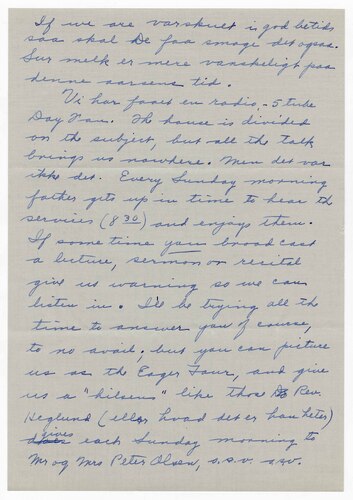 If we are varskuet i god betids
saa skal De faa smage det ogsaa.
Sur melk er mere vanskeligt paa
denne aarsens tid.
Vi har faaet en radio, - 5 tube
Day Fan. The house is divided
on the subject, but all the talk
brings us nowhere. Men det var
ikke det. Every Sunday morning
father gets up in time to hear the
services (8 30) and enjoys them.
If some time you broadcast
a lecture, sermon or recital
give us warning so we can
listen in. I'll be trying all the
time to answer you of course,
to no avail, but you can picture
us as the Eager Four, and give
us a "hilsen" like tha Rev.
Heglund (eller hvad det er han heter)
gives each Sunday morning to
Mr og Mrs Peter Olsen, o.s.v. s.s.v.